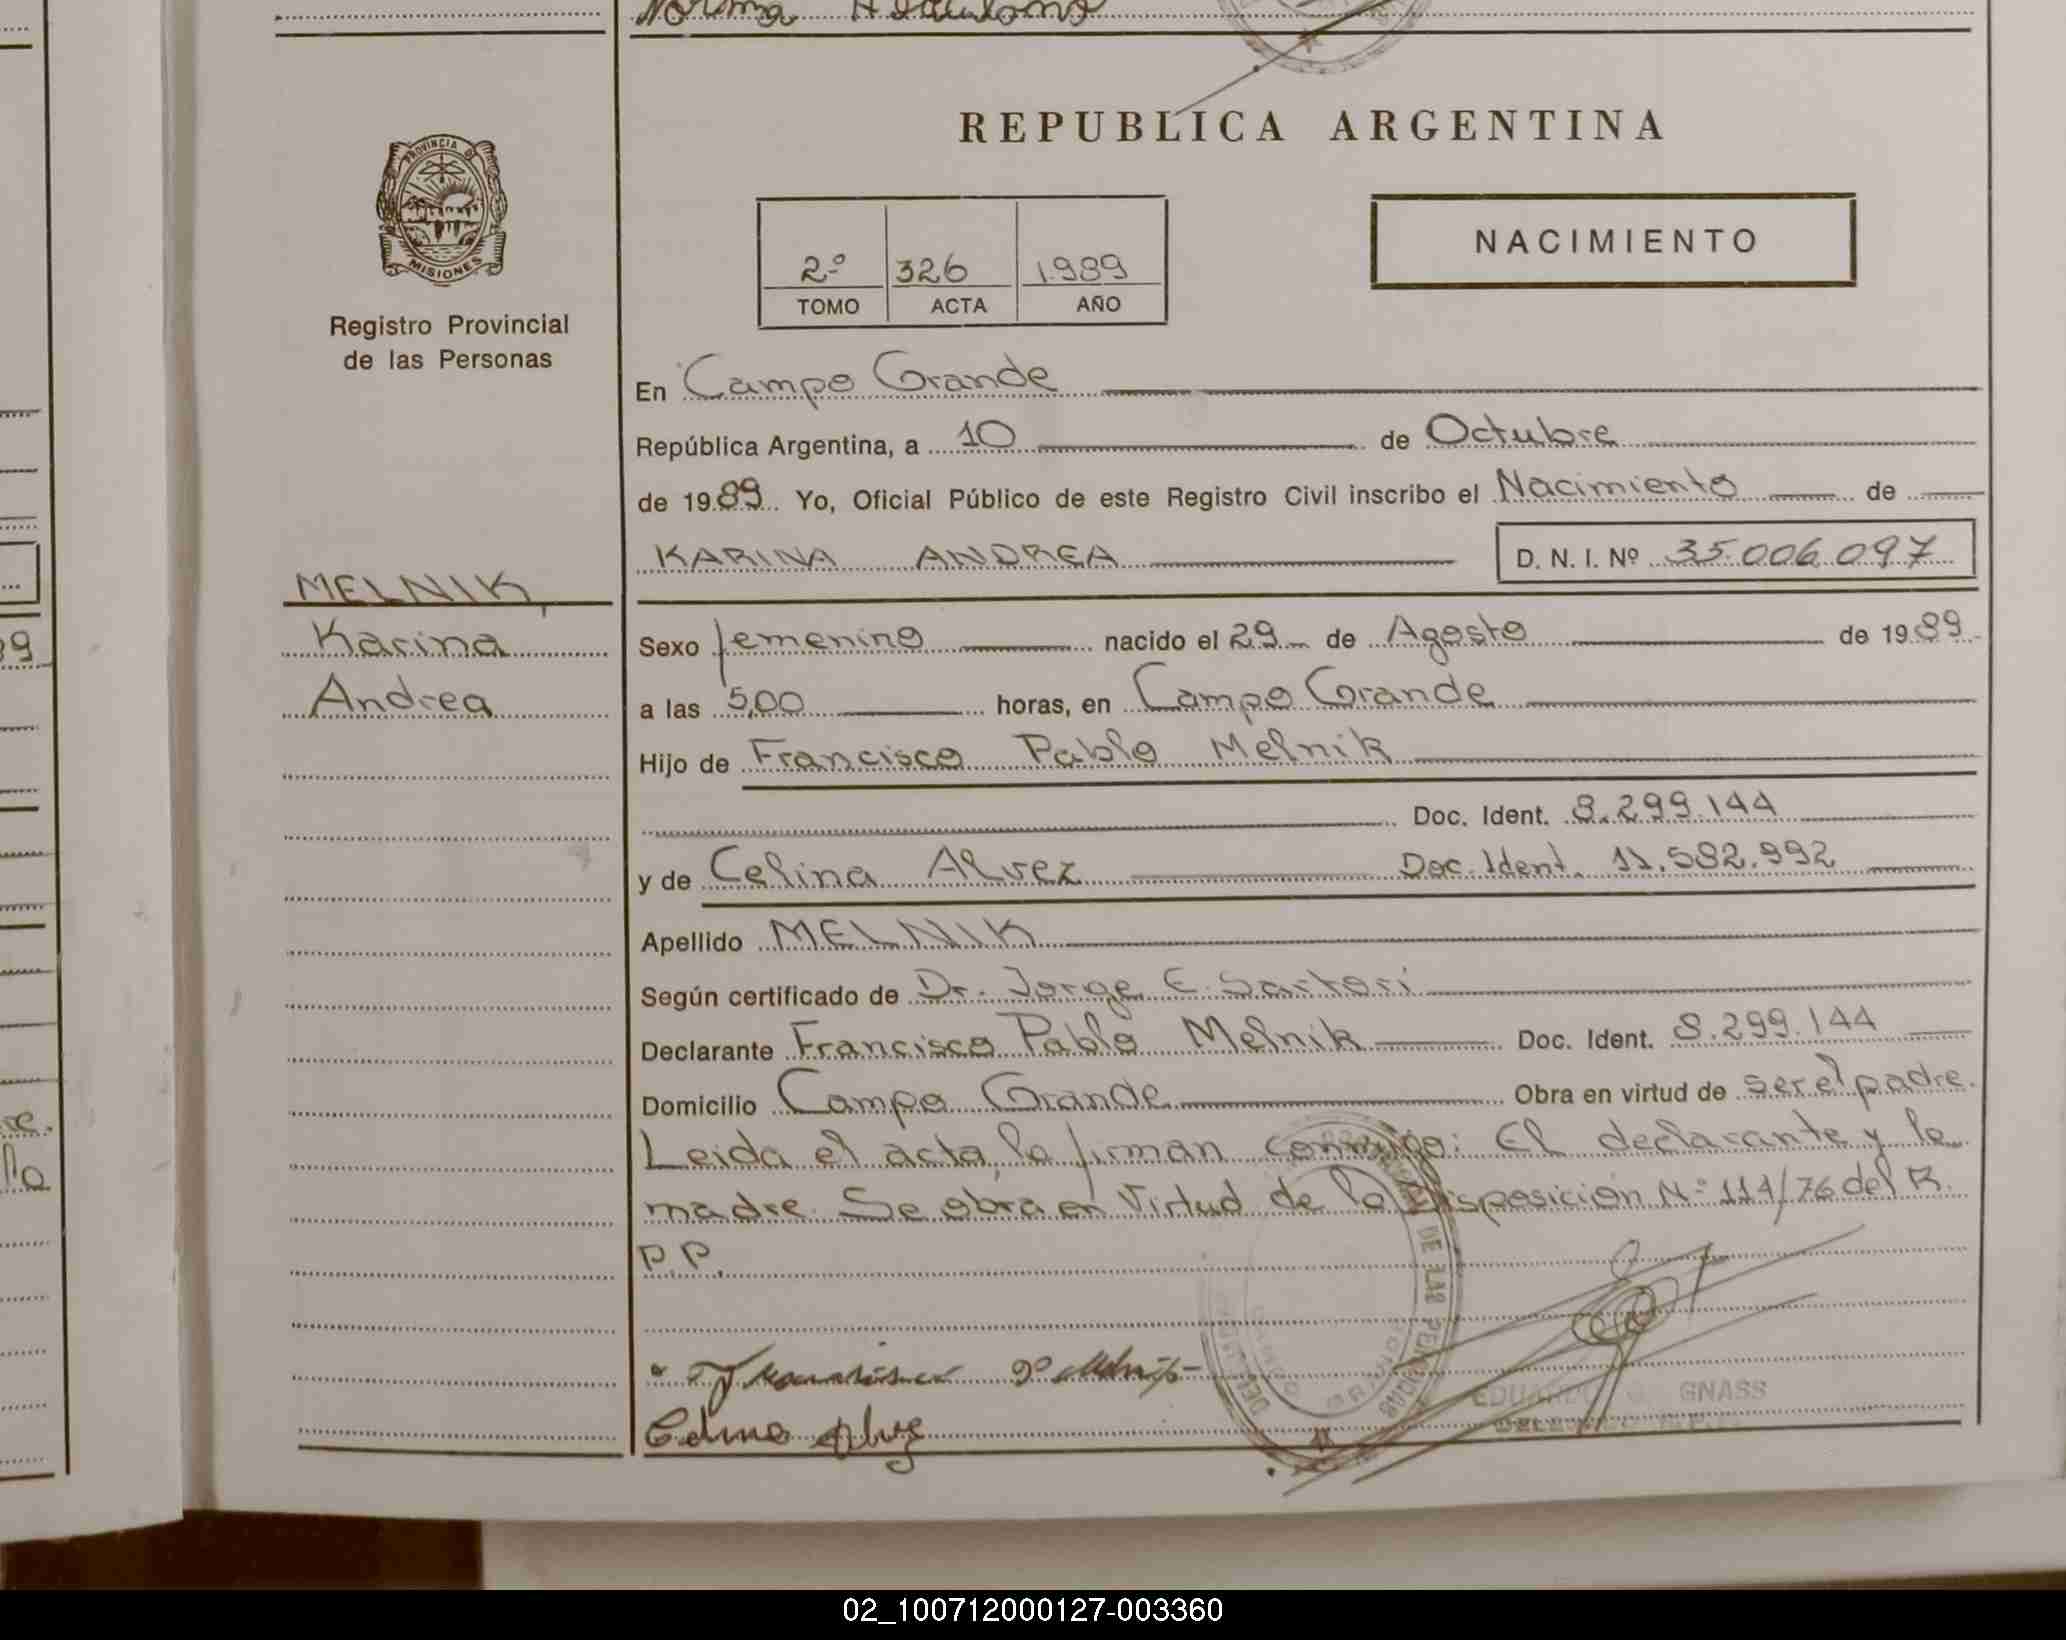 REPUBLICA ARGENTINA
PROVINCIA DE
MISIONES
Registro Provincial
de las Personas
2º 326 1.989
TOMO ACTA AÑO
NACIMIENTO
En Campo Grande
República Argentina, a 10 de Octubre
de 1989 Yo, Oficial Público de este Registro Civil inscribo el Nacimiento de
KARINA ANDREA D. N. I. Nº 35.006.097
MELNIK,
Karina
Andrea
Sexo femenino nacido el 29 de Agosto de 1989
a las 5,00 horas, en Campo Grande
Hijo de Francisco Pablo Melnik
Doc. Ident. 8.299.144
y de Celina Alvez Doc. Ident. 11.582.992
Apellido MELNIK
Según certificado de Dr. Jorge E. Sartori
Declarante Francisco Pablo Melnik Doc. Ident. 8.299.144
Domicilio Campo Grande Obra en virtud de ser el padre.
Leida el acta, la firman conmigo: El declarante y la
madre. Se obra en Virtud de la Disposición Nº 114/76 del R.
P.P.
Celina Alvez
EDUARDO GNASS
DE LAS PERSONAS
02_100712000127-003360